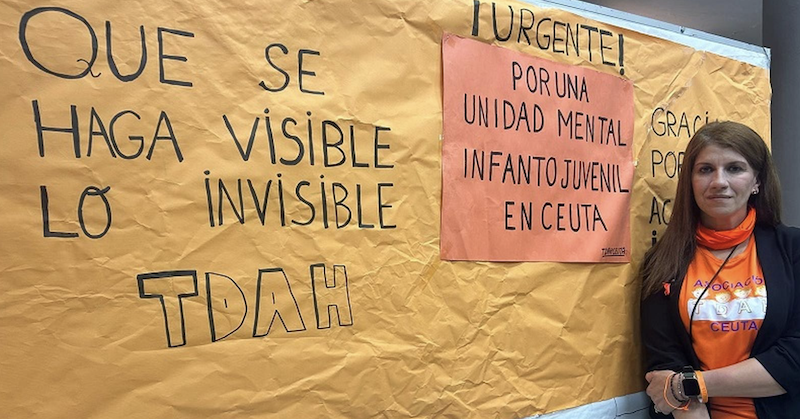 QUE SE
HAGA VISIBLE
LO INVISIBLE
TDAH
¡URGENTE!
POR UNA
UNIDAD MENTAL
INFANTO JUVENIL
EN CEUTA
TDAHCEUTA
POR
TDA
CEUTA